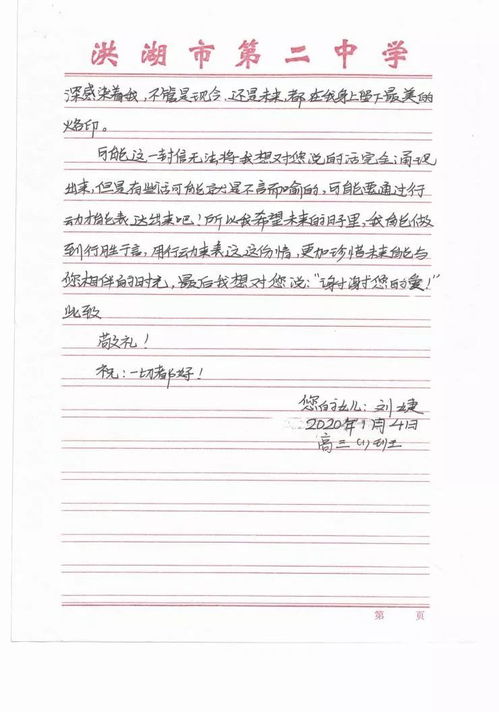 洪湖市第二中学
深感染着我，不管是现今，还是未来，都在我身上留下最美的
烙印。
可能这一封信无法将我想对您说的话完全涌现
出来，但是有些话可能就是不言而喻的，可能要通过行
动才能表达出来吧！所以我希望未来的日子里，我能做
到行胜于言，用行动来表达这份情，更加珍惜未来能与
您相伴的时光，最后我想对您说：“谢谢您的爱！”
此致
敬礼！
祝：一切都好！
您的女儿：刘婕
2020年1月4日
高三（1）班
第 页